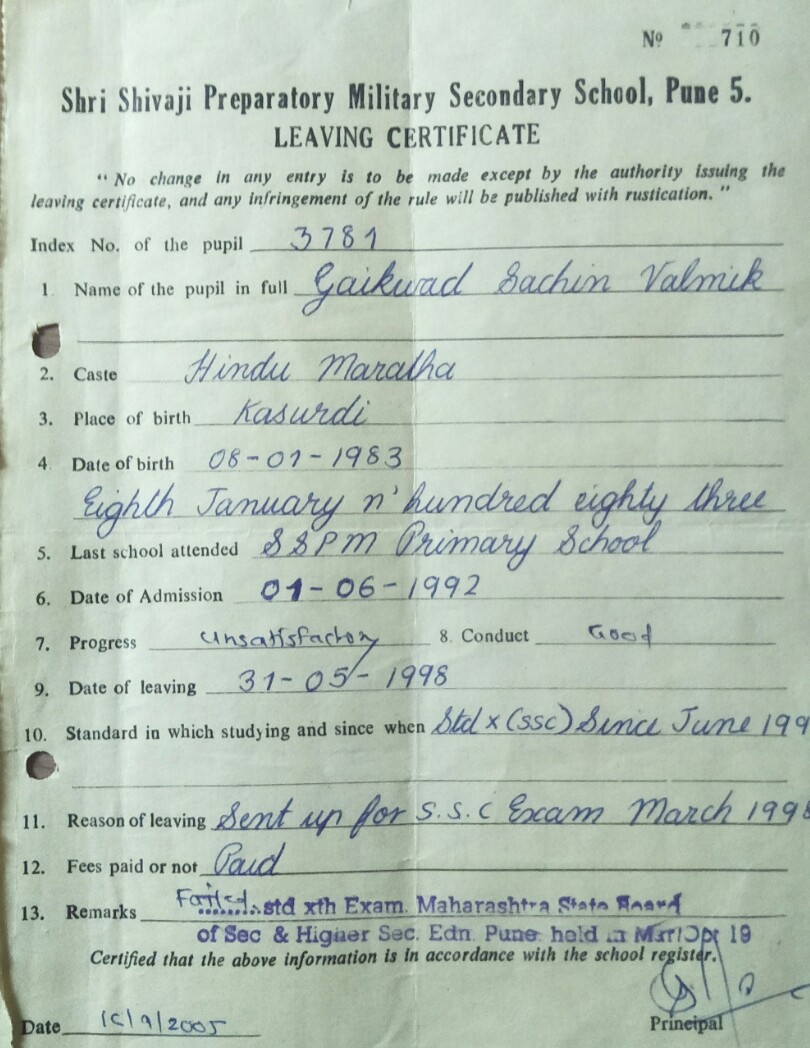 No 710
Shri Shivaji Preparatory Military Secondary School, Pune 5.
LEAVING CERTIFICATE
" No change in any entry is to be made except by the authority issuing the
leaving certificate, and any infringement of the rule will be published with rustication. "
Index No. of the pupil 3781
1. Name of the pupil in full Gaikwad Sachin Valmik
2. Caste Hindu Maratha
3. Place of birth Kasurdi
4. Date of birth 08-01-1983
Eighth January n' hundred eighty three
5. Last school attended SSPM Primary School
6. Date of Admission 01-06-1992
7. Progress Unsatisfactory 8. Conduct Good
9. Date of leaving 31-05-1998
10. Standard in which studying and since when Std X (SSC) Since June 199
11. Reason of leaving Sent up for S.S.C Exam March 1998
12. Fees paid or not Paid
13. Remarks Failed std xth Exam. Maharashtra State Board
of Sec & Higher Sec. Edn. Pune held in Mar/Opr 19
Certified that the above information is in accordance with the school register.
Date /9/2005 Principal